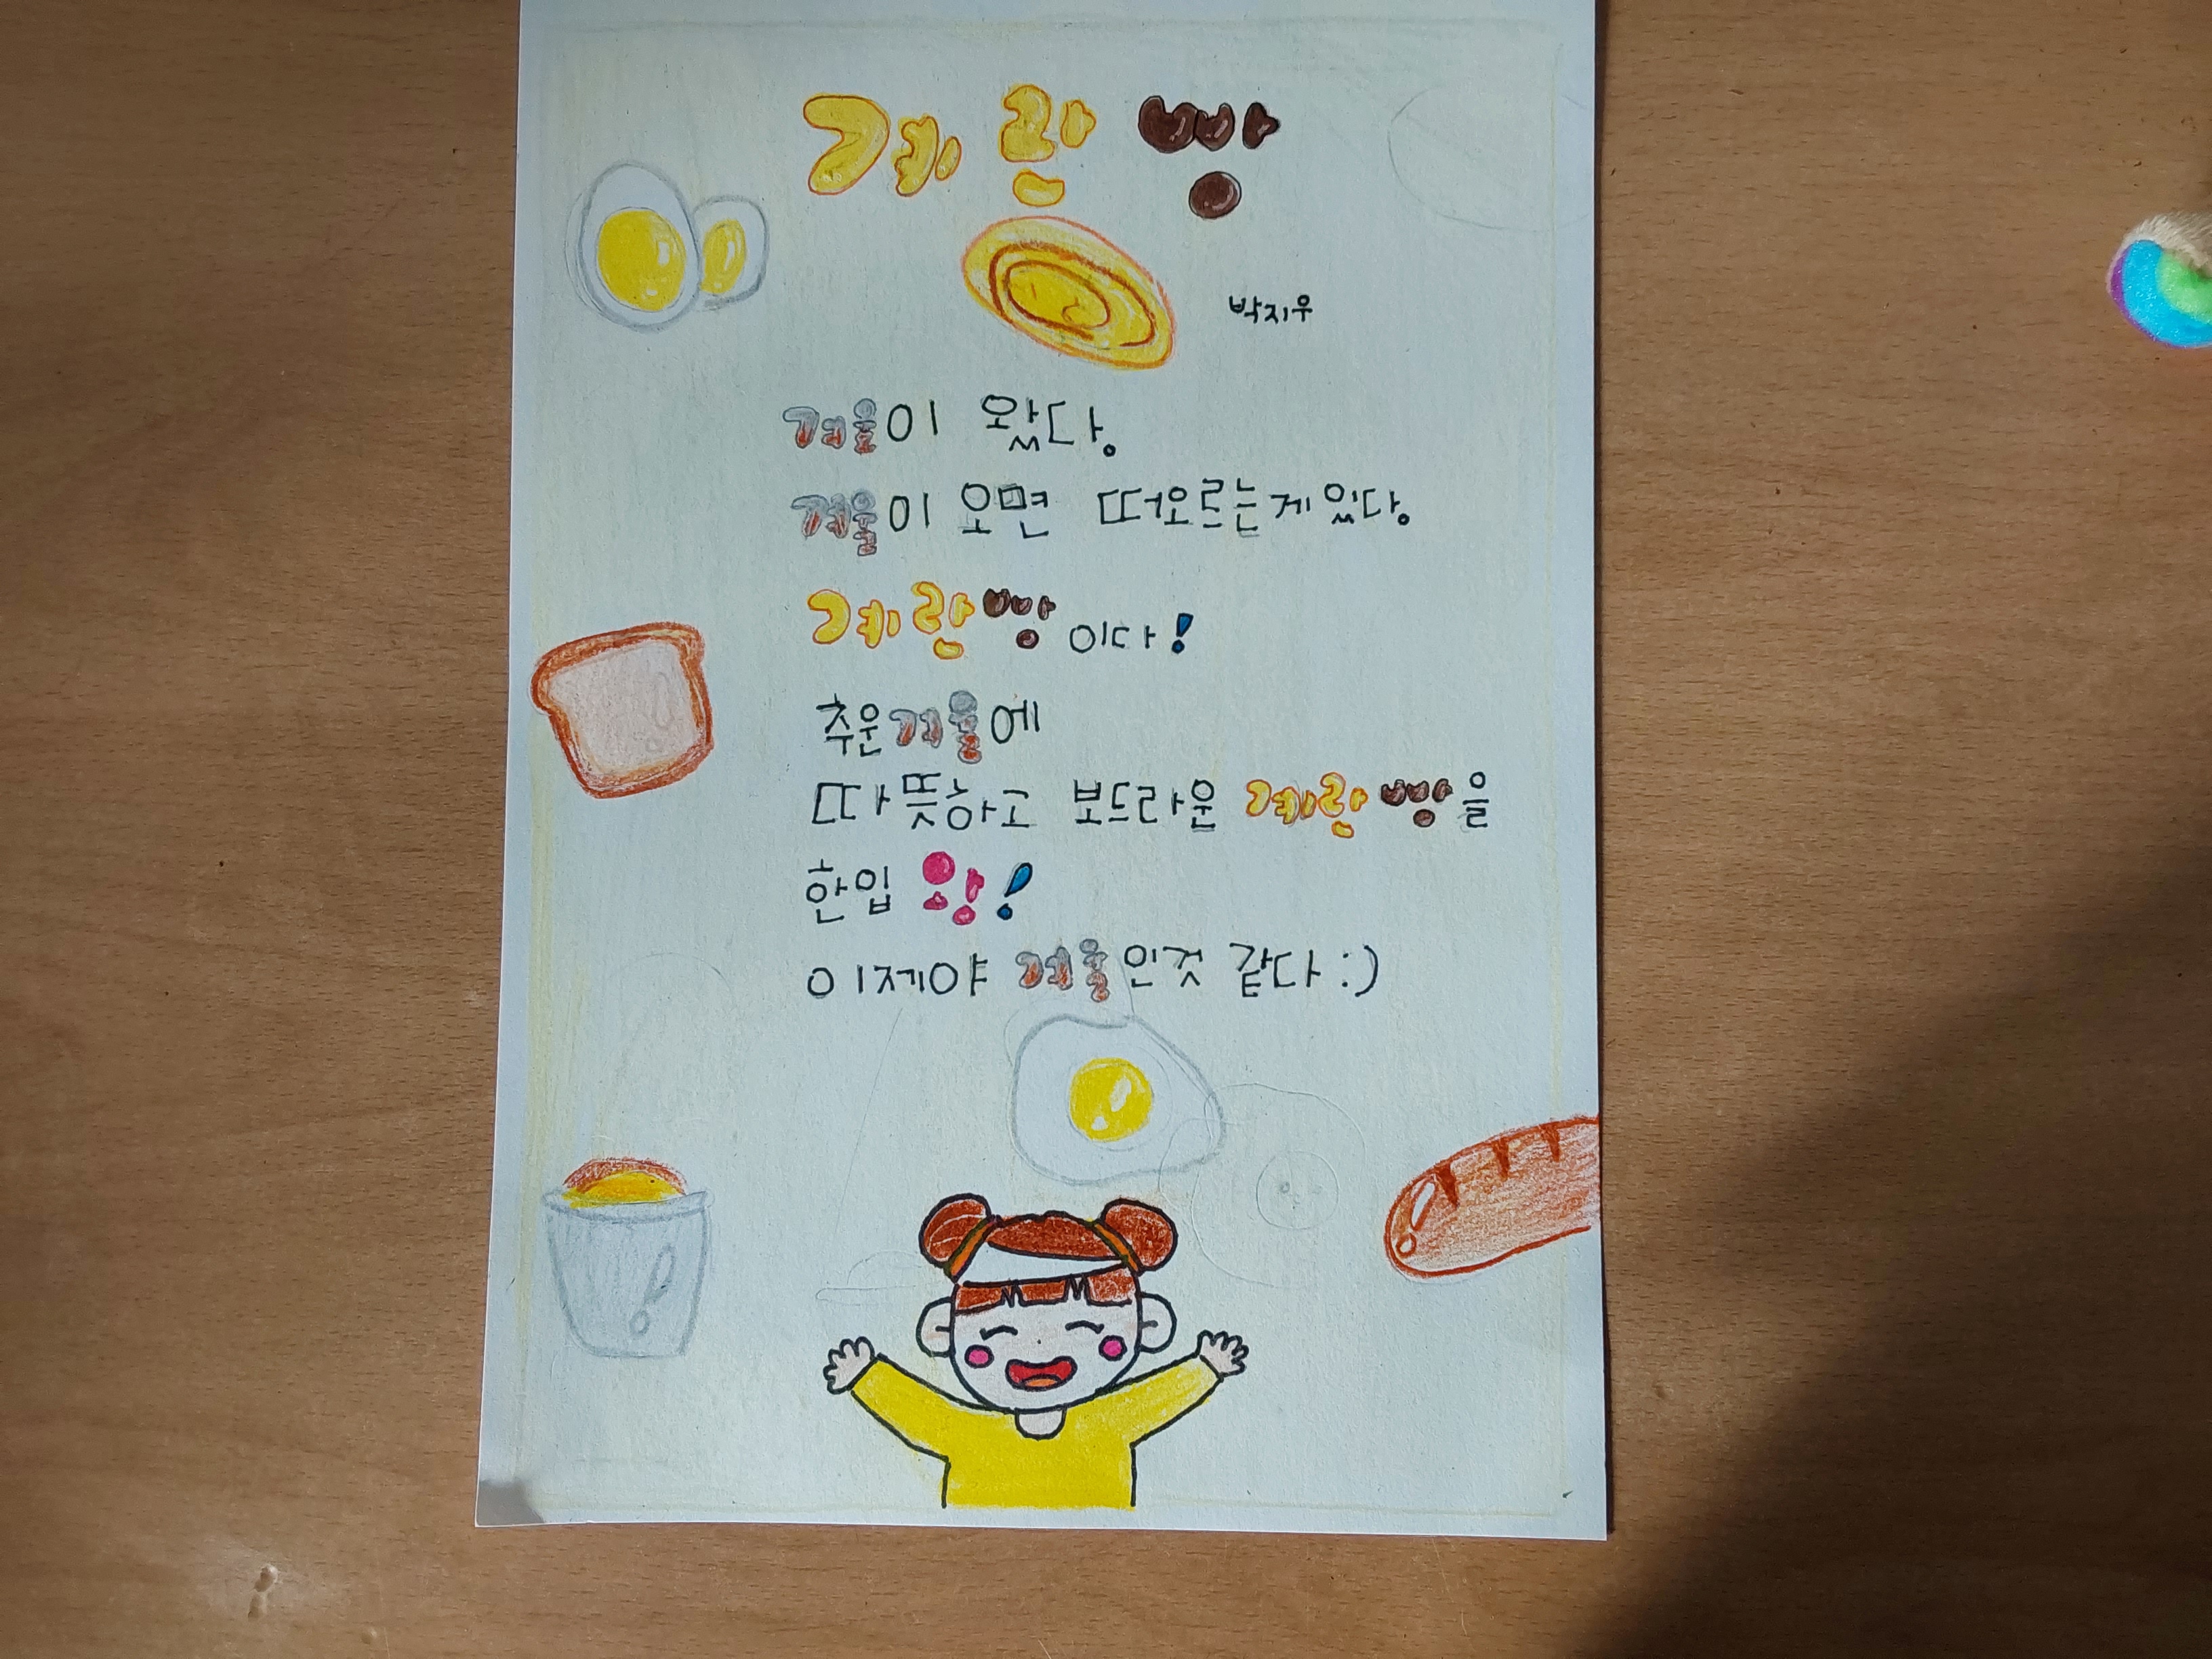 계란빵
박지우
겨울이 왔다.
겨울이 오면 떠오르는게 있다.
계란빵이다!
추운 겨울에
따뜻하고 보드라운 계란빵을
한입 왕!
이제야 겨울인것 같다 :)